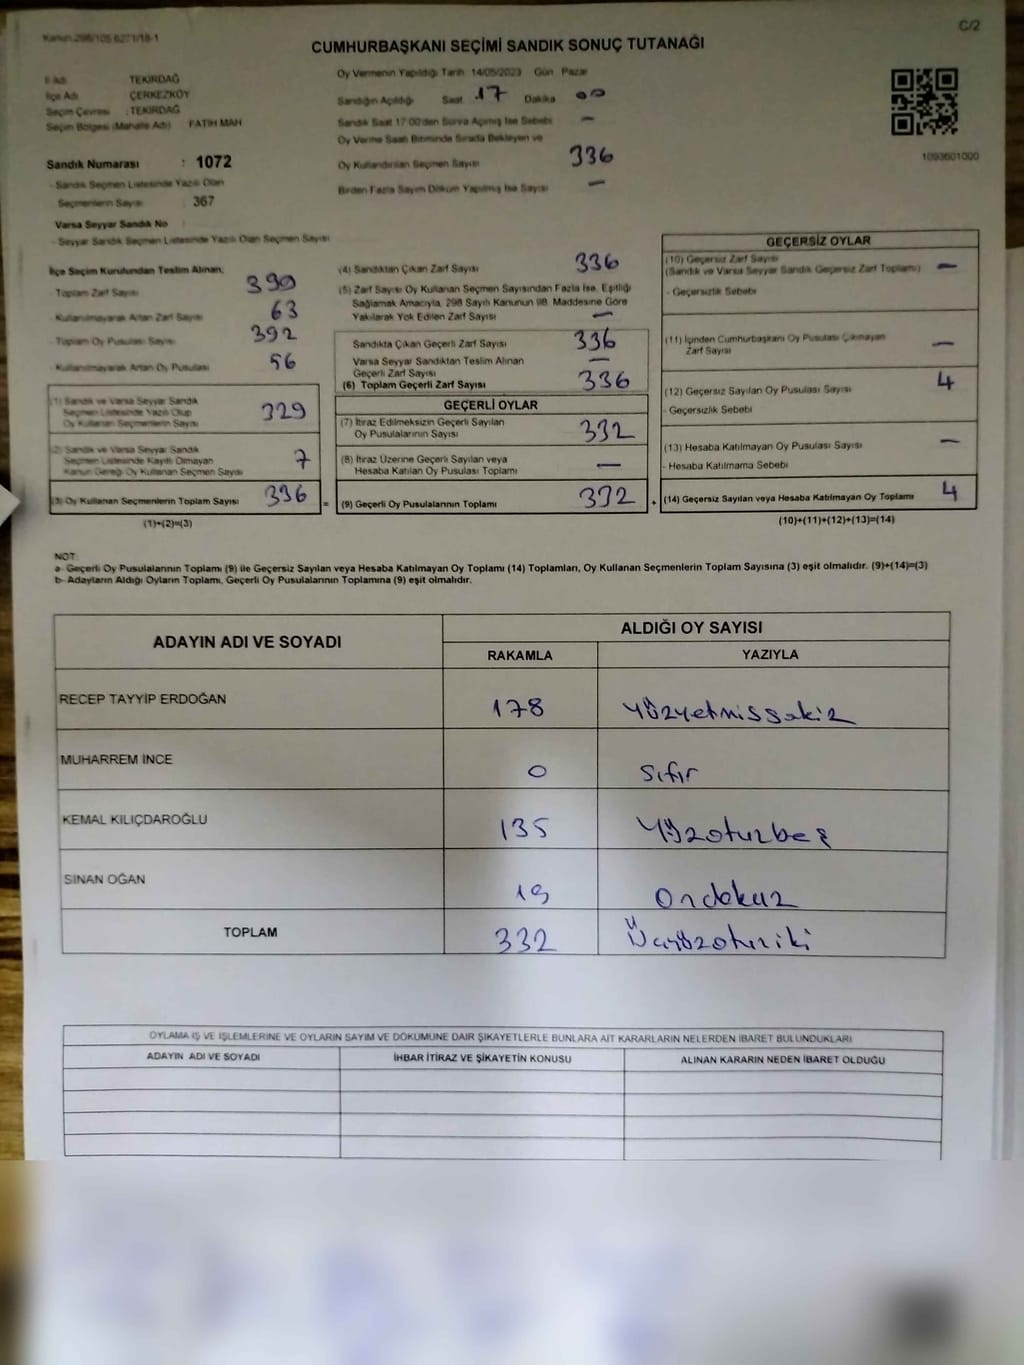 Kanun:298/105.6271/18-1
C/2
CUMHURBAŞKANI SEÇİMİ SANDIK SONUÇ TUTANAĞI
İl Adı TEKİRDAĞ
İlçe Adı ÇERKEZKÖY
Seçim Çevresi : TEKİRDAĞ
Seçim Bölgesi (Mahalle Adı) FATİH MAH
Sandık Numarası : 1072
- Sandık Seçmen Listesinde Yazılı Olan
Seçmenlerin Sayısı : 367
Varsa Seyyar Sandık No :
- Seyyar Sandık Seçmen Listesinde Yazılı Olan Seçmen Sayısı
Oy Vermenin Yapıldığı Tarih 14/05/2023 Gün Pazar
Sandığın Açıldığı Saat 17 Dakika 00
Sandık Saat 17:00'den Sonra Açılmış İse Sebebi –
Oy Verme Saati Bitiminde Sırada Bekleyen ve
Oy Kullandırılan Seçmen Sayısı 336
Birden Fazla Sayım Döküm Yapılmış İse Sayısı –
1093601000
İlçe Seçim Kurulundan Teslim Alınan;
- Toplam Zarf Sayısı 390
- Kullanılmayarak Artan Zarf Sayısı 63
- Toplam Oy Pusulası Sayısı 392
- Kullanılmayarak Artan Oy Pusulası 56
(1) Sandık ve Varsa Seyyar Sandık
Seçmen Listesinde Yazılı Olup
Oy Kullanan Seçmenlerin Sayısı 329
(2) Sandık ve Varsa Seyyar Sandık
Seçmen Listesinde Kayıtlı Olmayan
Kanun Gereği Oy Kullanan Seçmen Sayısı 7
(3) Oy Kullanan Seçmenlerin Toplam Sayısı 336
(1)+(2)=(3)
(4) Sandıktan Çıkan Zarf Sayısı 336
(5) Zarf Sayısı Oy Kullanan Seçmen Sayısından Fazla İse, Eşitliği
Sağlamak Amacıyla, 298 Sayılı Kanunun 98. Maddesine Göre
Yakılarak Yok Edilen Zarf Sayısı –
Sandıkta Çıkan Geçerli Zarf Sayısı 336
Varsa Seyyar Sandıktan Teslim Alınan
Geçerli Zarf Sayısı –
(6) Toplam Geçerli Zarf Sayısı 336
GEÇERLİ OYLAR
(7) İtiraz Edilmeksizin Geçerli Sayılan
Oy Pusulalarının Sayısı 332
(8) İtiraz Üzerine Geçerli Sayılan veya
Hesaba Katılan Oy Pusulası Toplamı –
= (9) Geçerli Oy Pusulalarının Toplamı 332 +
GEÇERSİZ OYLAR
(10) Geçersiz Zarf Sayısı
(Sandık ve Varsa Seyyar Sandık Geçersiz Zarf Toplamı) –
- Geçersizlik Sebebi
(11) İçinden Cumhurbaşkanı Oy Pusulası Çıkmayan
Zarf Sayısı –
(12) Geçersiz Sayılan Oy Pusulası Sayısı 4
- Geçersizlik Sebebi
(13) Hesaba Katılmayan Oy Pusulası Sayısı –
- Hesaba Katılmama Sebebi
(14) Geçersiz Sayılan veya Hesaba Katılmayan Oy Toplamı 4
(10)+(11)+(12)+(13)=(14)
NOT
a- Geçerli Oy Pusulalarının Toplamı (9) ile Geçersiz Sayılan veya Hesaba Katılmayan Oy Toplamı (14) Toplamları, Oy Kullanan Seçmenlerin Toplam Sayısına (3) eşit olmalıdır. (9)+(14)=(3)
b- Adayların Aldığı Oyların Toplamı, Geçerli Oy Pusulalarının Toplamına (9) eşit olmalıdır.
ADAYIN ADI VE SOYADI ALDIĞI OY SAYISI
RAKAMLA YAZIYLA
RECEP TAYYİP ERDOĞAN 178 Yüzyetmişsekiz
MUHARREM İNCE 0 Sıfır
KEMAL KILIÇDAROĞLU 135 Yüzotuzbeş
SİNAN OĞAN 19 Ondokuz
TOPLAM 332 Üçyüzotuziki
OYLAMA İŞ VE İŞLEMLERİNE VE OYLARIN SAYIM VE DÖKÜMÜNE DAİR ŞİKAYETLERLE BUNLARA AİT KARARLARIN NELERDEN İBARET BULUNDUKLARI
ADAYIN ADI VE SOYADI İHBAR İTİRAZ VE ŞİKAYETİN KONUSU ALINAN KARARIN NEDEN İBARET OLDUĞU